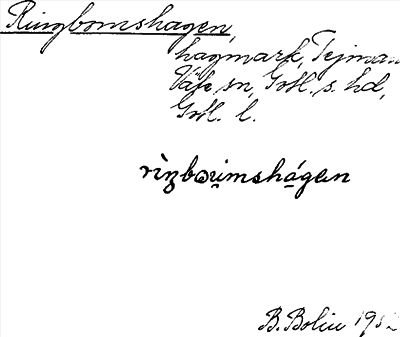 Ringbomshagen,
hagmark, Tejman
Väte sn, Gotl. s. hd,
Gotl. l.
rìŋbo̯u̯mshá̤gɛn
B. Bolin 195